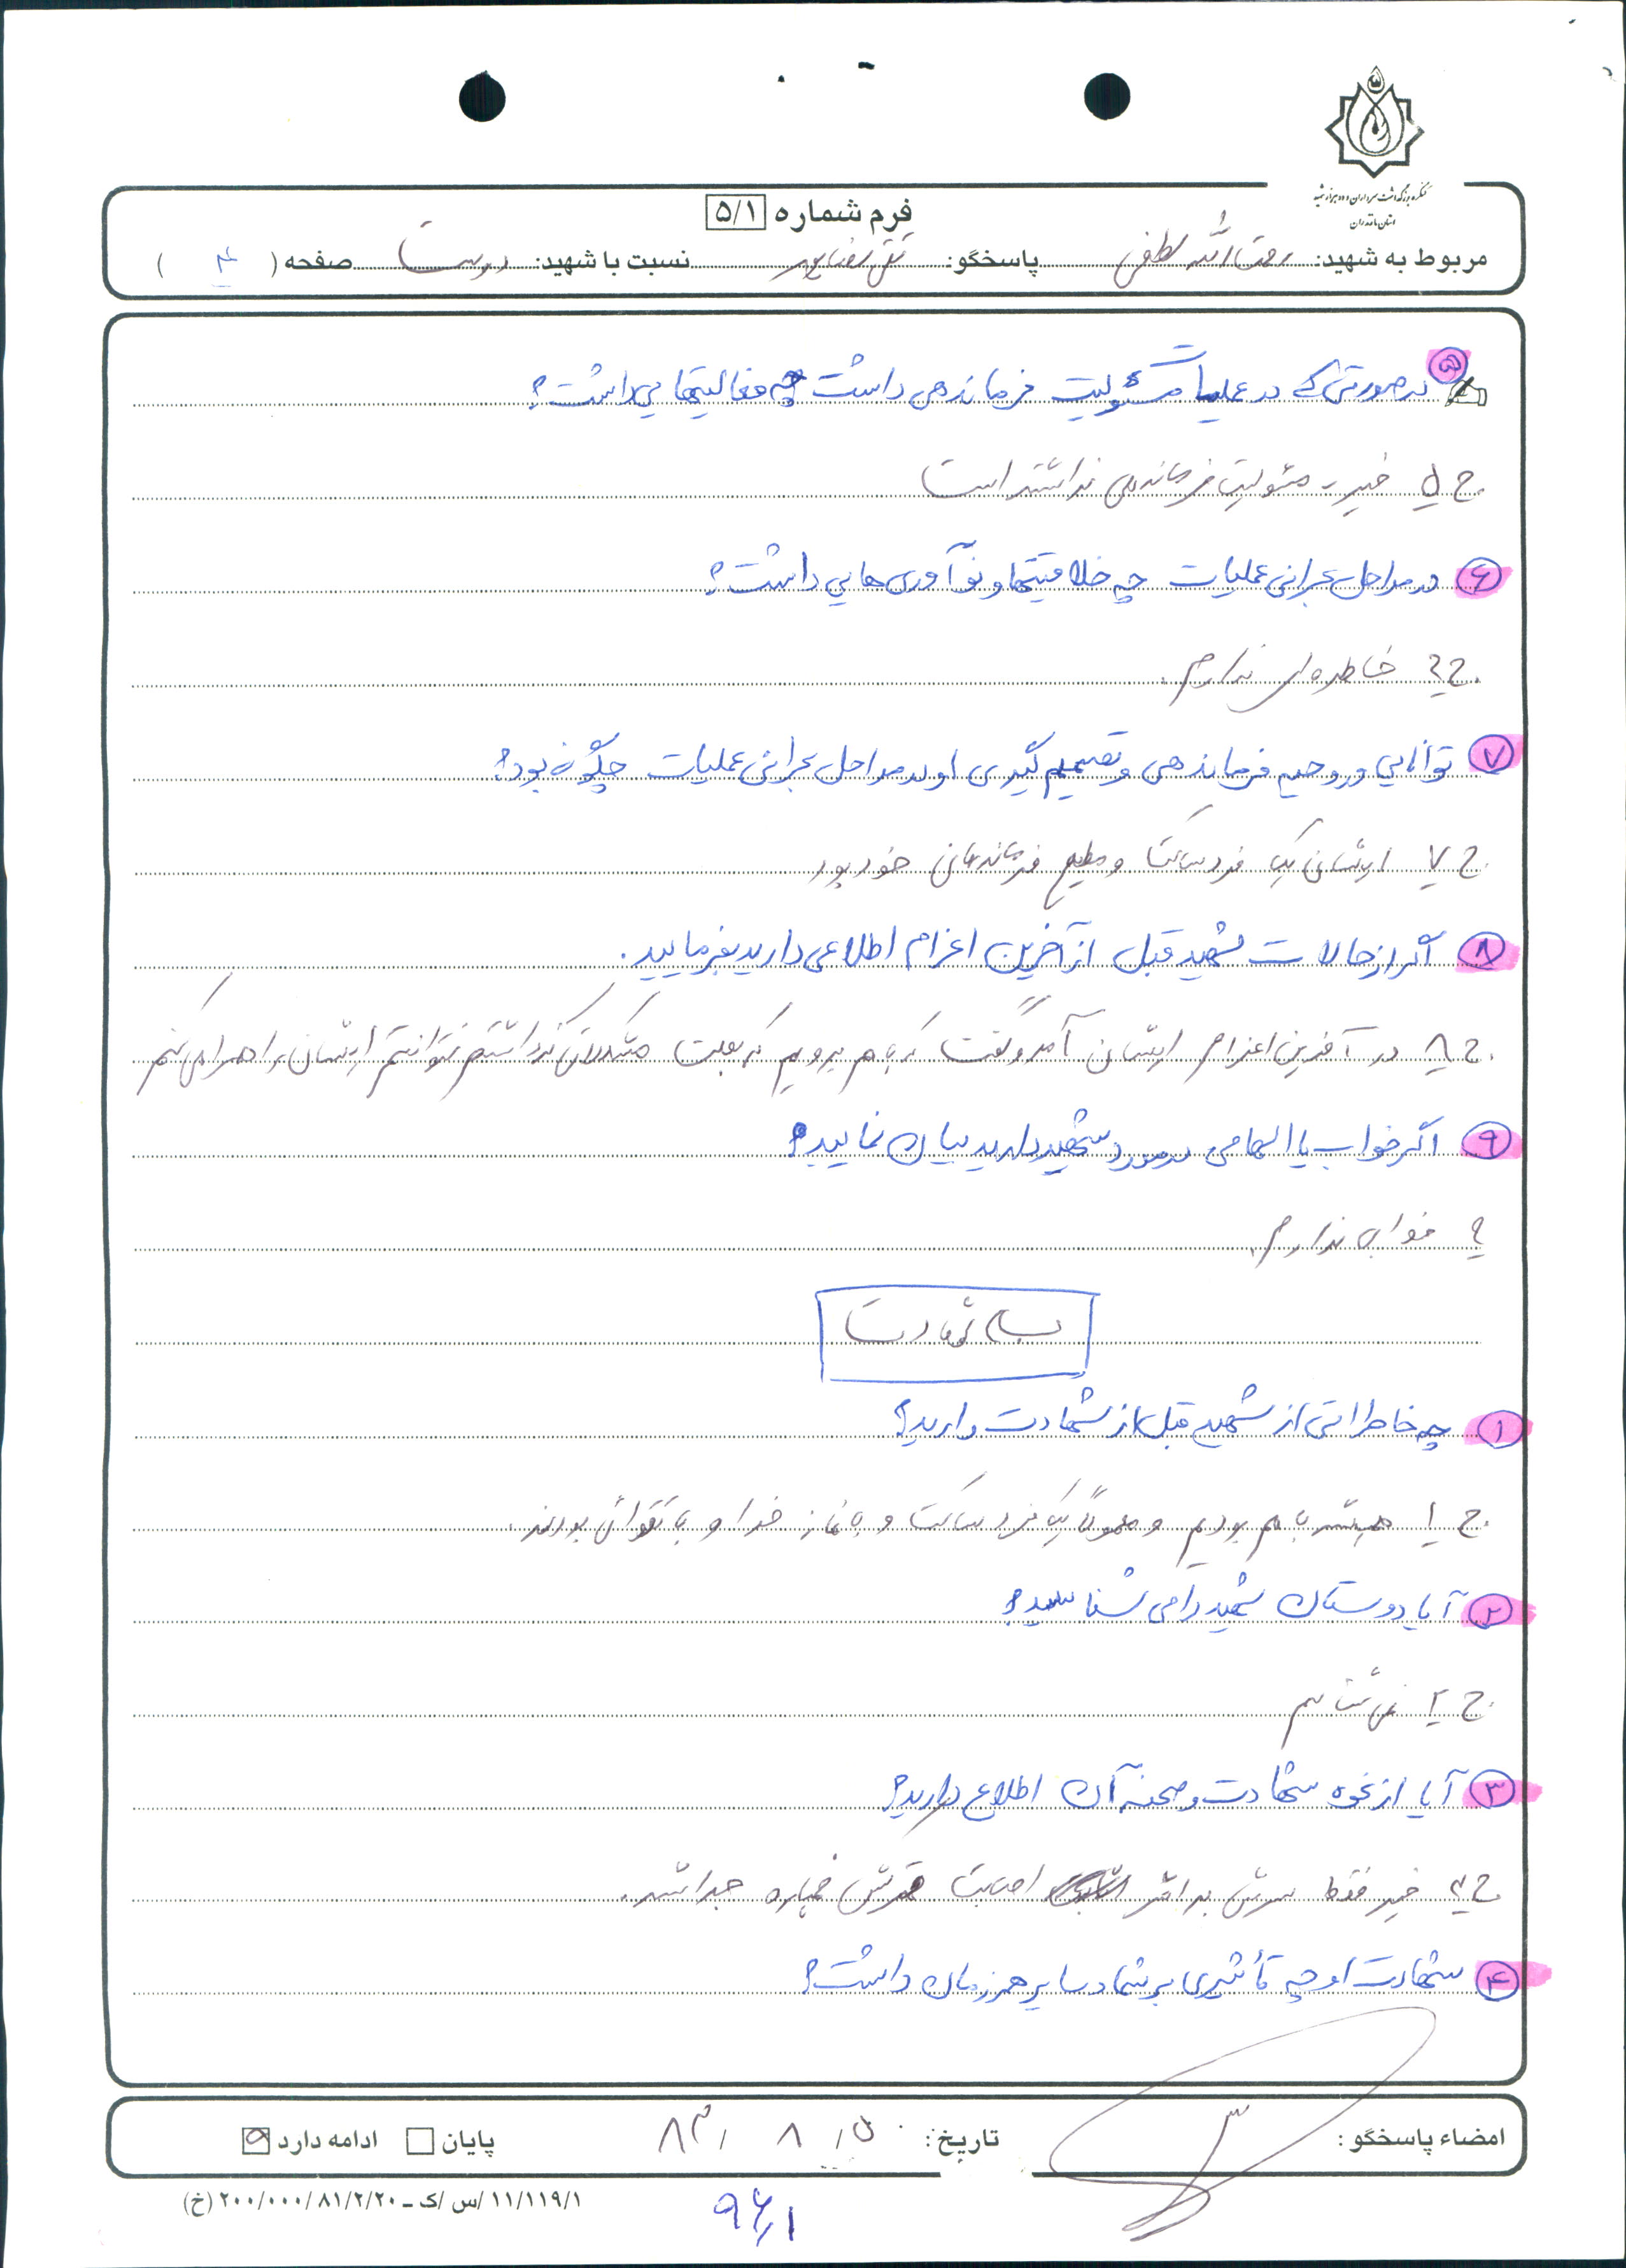 کنگره بزرگداشت سرداران و ده هزار شهید
استان مازندران
فرم شماره ۵/۱
مربوط به شهید: رحمت الله لطفی پاسخگو: تقی نسبت با شهید: دوست صفحه ( ۴ )
۵ در صورتی که در عملیات مسئولیت فرماندهی داشت چه فعالیتهایی داشت؟
ج ۵ خیر - مسئولیت فرماندهی نداشته است
۶ در مراحل بحرانی عملیات چه خلاقیتها و نوآوری هایی داشت؟
ج ۶ خاطره ای ندارم.
۷ توانایی و روحیه فرماندهی و تصمیم گیری او در مراحل بحرانی عملیات چگونه بود؟
ج ۷ ایشان یک فرد ساکت و مطیع فرماندهان خود بود
۸ اگر از حالات شهید قبل از آخرین اعزام اطلاعی دارید بفرمایید.
ج ۸ در آخرین اعزام ایشان آمد و گفت که با هم برویم که بعلت مشکلاتی که داشتم نتوانستم ایشان را همراهی کنم
۹ اگر خواب یا الهامی در مورد شهید دارید بیان نمایید؟
۹ خوابی ندارم.
شهادت
۱ چه خاطراتی از شهید قبل از شهادت دارید؟
ج ۱ همیشه با هم بودیم و معمولاً یک فرد ساکت و با نماز خدا و با تقوائی بودند.
۲ آیا دوستان شهید را می شناسید؟
ج ۲ نمی شناسم
۳ آیا از نحوه شهادت و صحنه آن اطلاع دارید؟
ج ۳ خیر فقط سرش بر اثر اصابت ترکش خمپاره جدا شد.
۴ شهادت او چه تأثیری بر شما و سایر همرزمان داشت؟
امضاء پاسخگو: تاریخ: ۵ / ۸ / ۸۳ پایان ادامه دارد
۱۱/۱۱۹/۱ /س /ک ـ ۲۰۰/۰۰۰/۸۱/۲/۲۰ (خ)